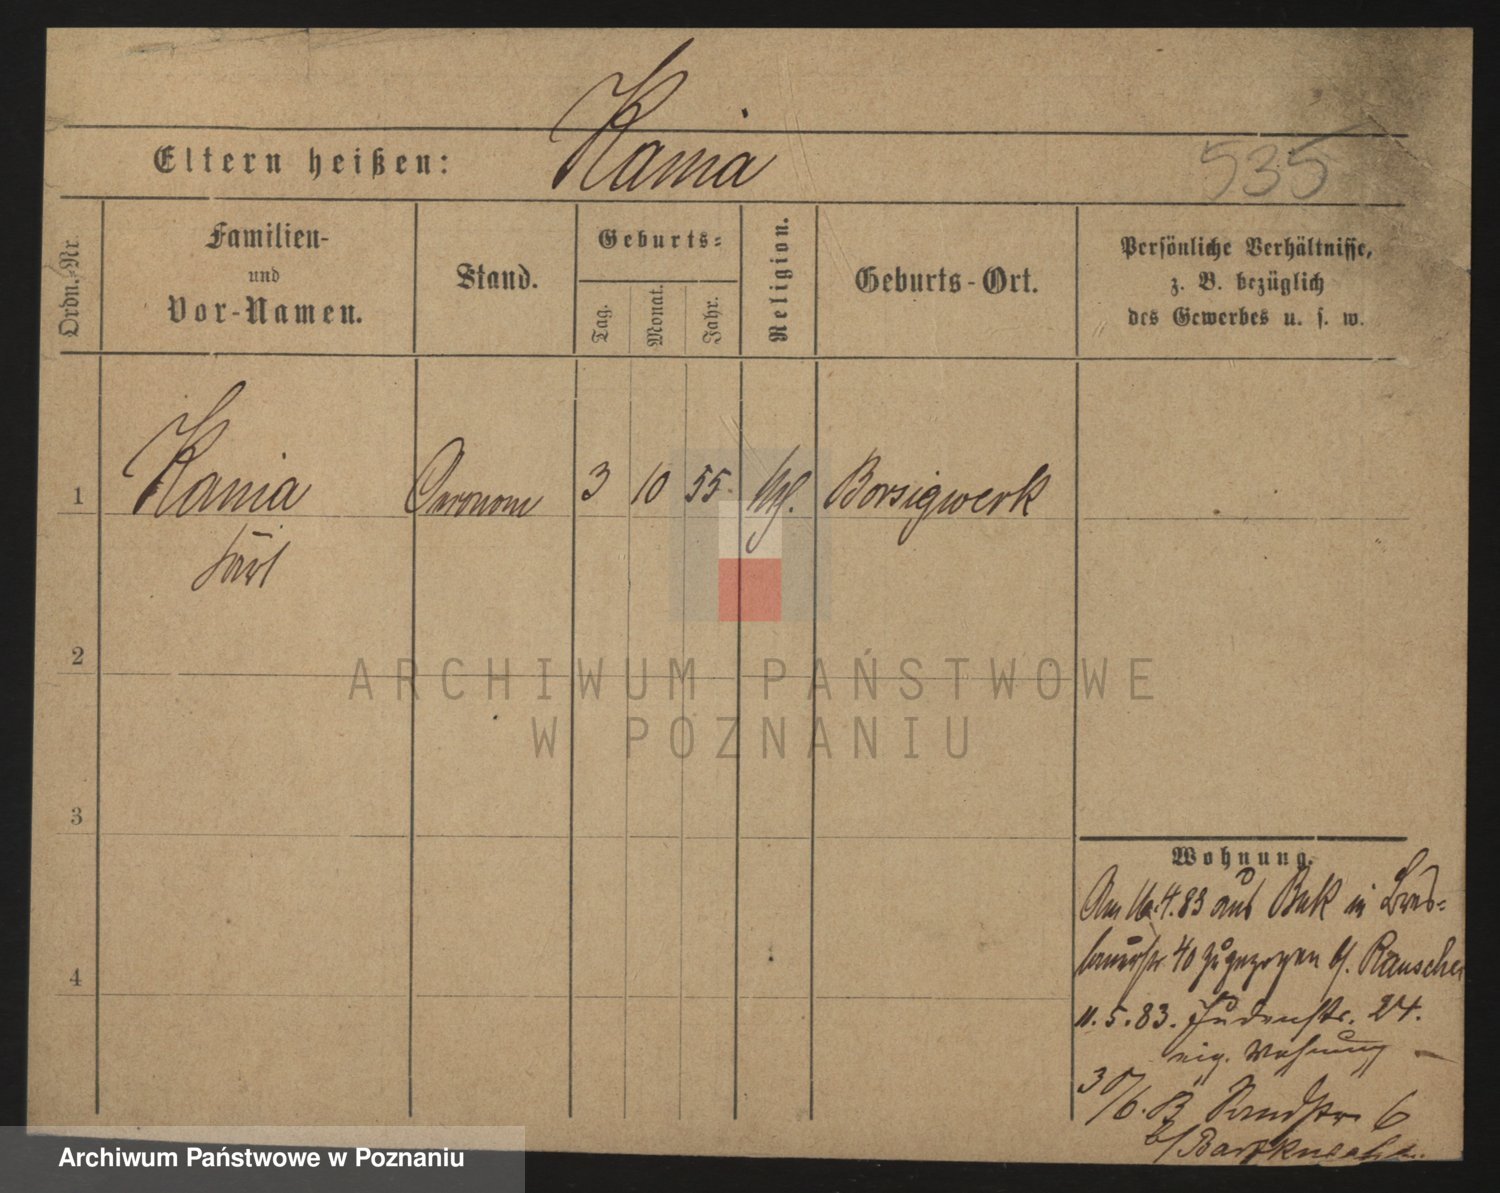 Eltern heißen: Kania
535
Ordn.-Nr.
Familien-
und
Vor-Namen.
Stand.
Geburts-
Tag.
Monat.
Jahr.
Religion.
Geburts-Ort.
Persönliche Verhältnisse,
z. B. bezüglich
des Gewerbes u. s. w.
1 Kania 3 10 55 Borsigwerk
2
ARCHIWUM PAŃSTWOWE
W POZNANIU
3
4
Wohnung.
Am 16.4.83 aus Buk in Bres-
lauerstr 40 zugezogen b/. Rauscher
11.5.83. Judenstr. 24.
eig. Wohnung
Sandstr 6
Archiwum Państwowe w Poznaniu